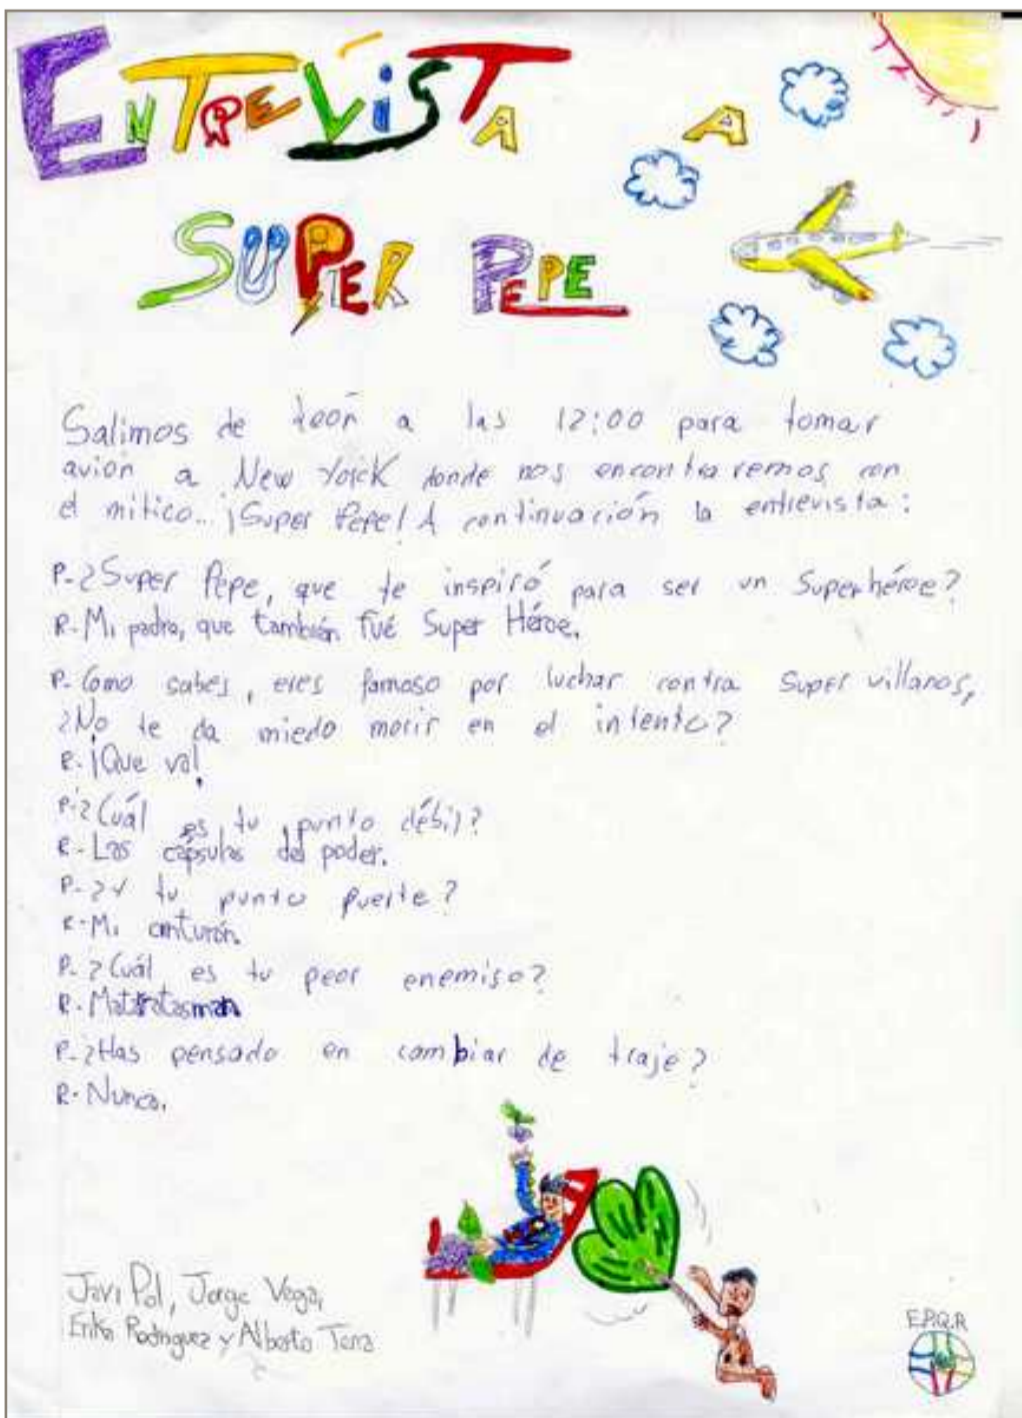 ENTREVISTA A
SUPER PEPE
Salimos de león a las 12:00 para tomar
avión a New Yorck donde nos encontraremos con
el mítico... ¡Super Pepe! A continuación la entrevista:
P-¿Super Pepe, que te inspiró para ser un Superhéroe?
R-Mi padre, que también fué Super Héroe.
P-Como sabes, eres famoso por luchar contra Super villanos,
¿No te da miedo morir en el intento?
R-¡Que va!
P-¿Cuál es tu punto débil?
R-Las cápsulas del poder.
P-¿Y tu punto fuerte?
R-Mi cinturón.
P-¿Cuál es tu peor enemigo?
R-Matarratasman
P-¿Has pensado en cambiar de traje?
R-Nunca.
Javi Pol, Jorge Vega,
Erika Rodriguez y Alberto
E.P.Q.R